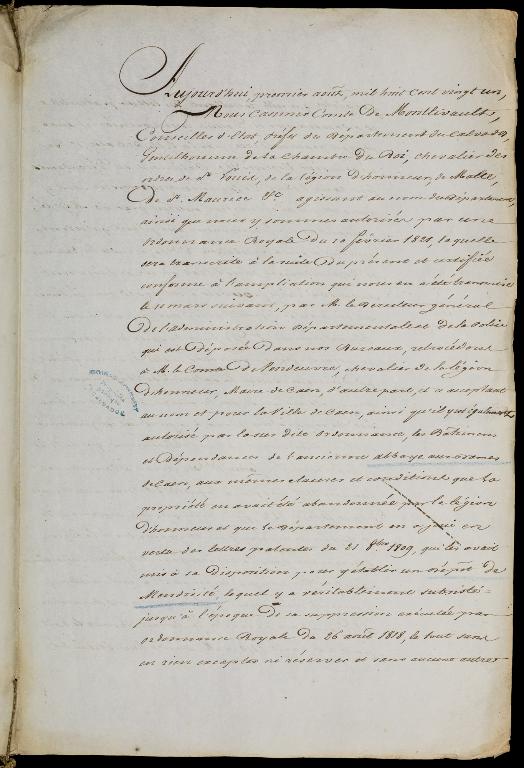 Aujourd'hui, premier août, mil huit cent vingt un,
Nous Casimir Comte De Montlivault,
Conseiller d'état, préfet du Département du Calvados,
Gentilhomme de la Chambre du Roi, chevalier des
ordres de St. Louis, de la légion d'honneur, de Malte,
De St. Maurice &c agissant au nom du Département,
ainsi que nous y sommes autorisés par une
ordonnance Royale du 10 février 1821, laquelle
sera transcrite à la suite du présent et certifiée
conforme à l'ampliation qui nous en a été transmise
le mars suivant, par M. le Directeur général
De l'administration Départementale et de la Police
qui est déposée dans nos Bureaux, rétrocédons
à M. le Comte De Vendeuvre, chevalier de la légion
d'honneur, Maire de Caen, d'autre part, et ce acceptant
au nom et pour la Ville de Caen, ainsi qu'il y est également
autorisé par la sus dite ordonnance, les Bâtimens
et Dépendances de l'ancienne abbaye aux dames
de Caen, aux mêmes clauses et conditions que la
propriété en avait été abandonnée par la légion
d'honneur et que le Département en a joui en
vertu des lettres patentes du 21 8bre 1809, qui les avait
mis à sa Disposition pour y établir un dépôt de
Mendicité, lequel y a véritablement subsisté
jusqu'à l'époque De sa suppression exécutée par
ordonnance Royale du 26 août 1818, le tout sans
en rien excepter ni réserver et sans aucune autre